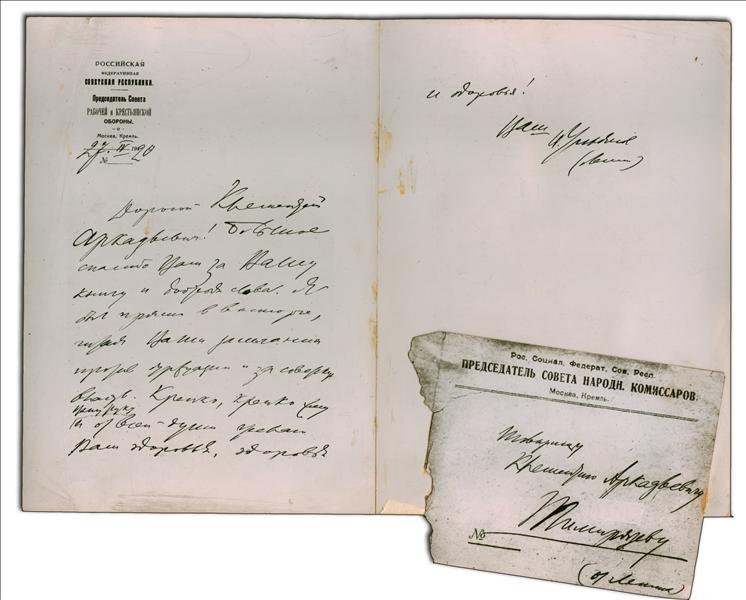 РОССИЙСКАЯ
ФЕДЕРАТИВНАЯ
СОВЕТСКАЯ РЕСПУБЛИКА.
Председатель Совета
РАБОЧЕЙ и КРЕСТЬЯНСКОЙ
ОБОРОНЫ.
Москва, Кремль.
27. IV 1920
№
Дорогой Клементий
Аркадьевич! Большое
спасибо Вам за Вашу
книгу и добрые слова. Я
был прямо в восторге,
читая Ваши замечания
против буржуазии и за Советскую
власть. Крепко, крепко жму
Вашу руку
и от всей души желаю
Вам здоровья, здоровья
и здоровья!
Ваш В. Ульянов
(Ленин)
Рос. Социал. Федерат. Сов. Респ.
ПРЕДСЕДАТЕЛЬ СОВЕТА НАРОДН. КОМИССАРОВ.
Москва, Кремль.
товарищу
Клементию Аркадьевичу
Тимирязеву
№
(от Ленина)